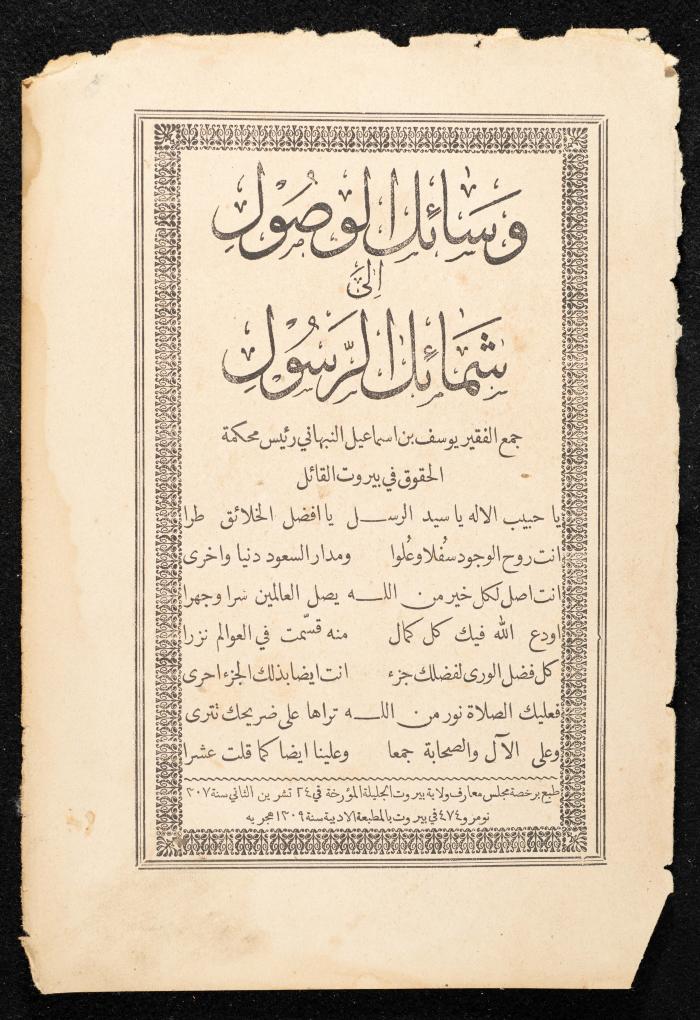 وسائل الوصول
الى
شمائل الرسول
جمع الفقير يوسف بن اسماعيل النبهاني رئيس محكمة
الحقوق في بيروت القائل
يا حبيب الاله يا سيد الرسل يا افضل الخلائق طرا
انت روح الوجود سفلا وعلوا ومدار السعود دنيا واخرى
انت اصل لكل خير من الله يصل العالمين سرا وجهرا
اودع الله فيك كل كمال منه قسّمت في العوالم نزرا
كل فضل الورى لفضلك جزء انت ايضا بذلك الجزء احرى
فعليك الصلاة نور من الله تراها على ضريحك تترى
وعلى الآل والصحابة جمعا وعلينا ايضا كما قلت عشرا
طبع برخصة مجلس معارف ولاية بيروت الجليلة المؤرخة في ٢٤ تشرين الثاني سنة ٣٠٧
نومرو ٤٧٤ في بيروت بالمطبعة الادبية سنة ١٣٠٩ هجريه